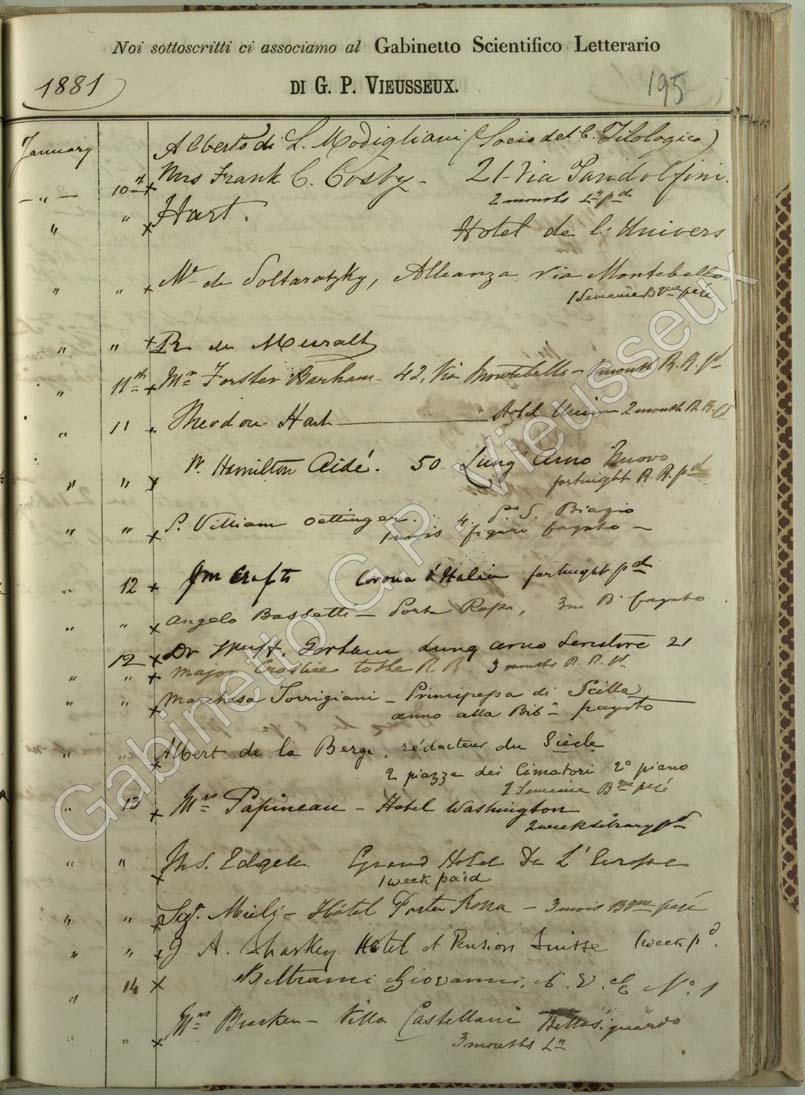 Noi sottoscritti ci associamo al Gabinetto Scientifico Letterario
1881
DI G. P. VIEUSSEUX.
195
January Alberto di L. Modigliani (Socio del C. Filologico)
— „ — 10th x Mrs Frank C. Cosby - 21 Via Pandolfini.
2 months Ly pd
„ „ x Hart.
Hotel de l'Univers
„ „ x Mr de Soltaratzky, Alleanza via Montebello.
1 Semaine B que payé
„ „ x R. de Muralt
„ 11th x Mr Forster Barham - 42, Via Montebello - 1 month R. R. pd
„ 11 x Theodore Hart Hotel Univer 2 month R. R. pd
„ „ x Hamilton Aidé. 50 Lung' Arno Nuovo
fortnight R. R. pd
„ „ x S. William Oettinger. 4. S. Biagio
1 mois pagato —
„ 12 x Jm Crafts Corona d'Italia fortnight pd
x Angelo Bassetti - Porta Rossa, 3m Bª pagato
12 x Dr Gorham Lung Arno 21
„ „ x Major to the R. R. 3 months R. R. pd
„ „ x Marchesa Torrigiani - Principessa di Scilla
anno alla Bibª pagato
„ „ x Albert de la Berge, rédacteur du Siècle
2 piazza dei Cimatori 2º piano
1 Semaine Bque payé
„ 13 x Mrs Papineau - Hotel Washington
2 week library pd
„ „ x M. S. Edgell Grand Hotel De L'Europe
1 week paid
„ „ x Sgr. Mieli - Hôtel Porta Rossa - 3 mois Bque payé
„ „ x J. A. Sharkey Hotel et Pension Suisse 1 week pd.
„ 14 x Beltrami Giovanni, Nº 1
„ „ x Mrs Bracken - Villa Castellani Bellosguardo
3 months Ly
Gabinetto G.P. Vieusseux